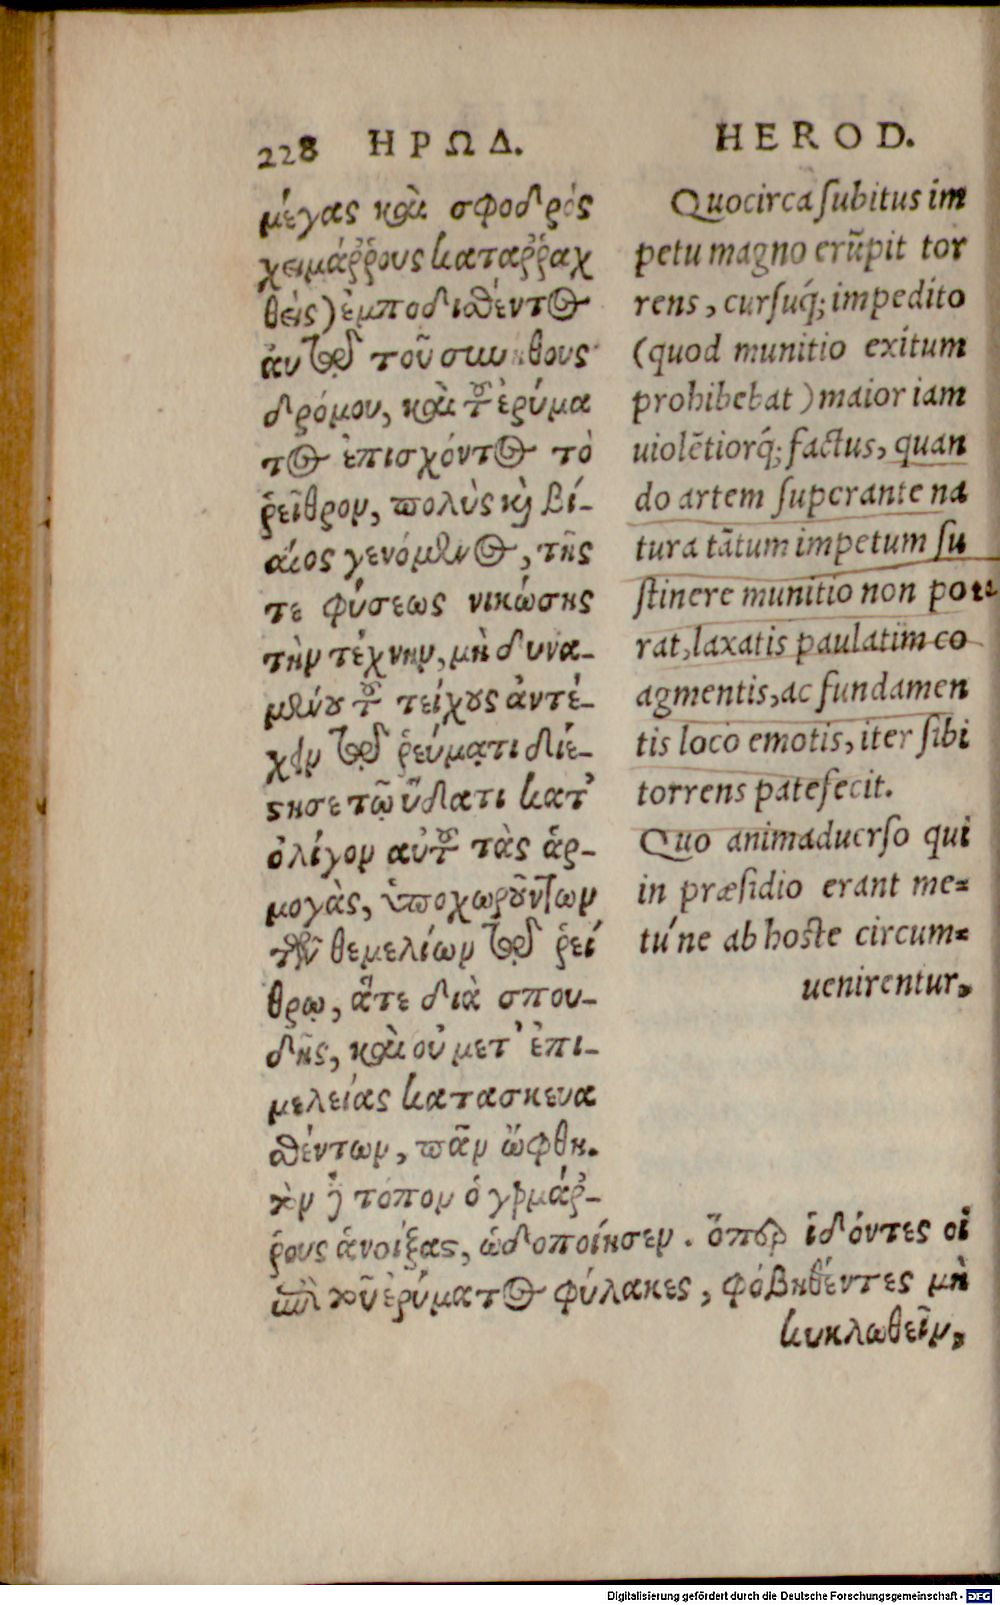 228 ΗΡΩΔ.
μέγας καὶ σφοδρός
χειμάῤῥους καταῤῥαχ
θεὶς) ἐμποδισθέντος
αὐτῷ τοῦ συνήθους
δρόμου, καὶ τοῦ ἐρύμα
τος ἐπισχόντος τὸ
ῥεῖθρον, πολὺς κὶ βί-
αιος γενόμενος, τῆς
τε φύσεως νικώσης
τὴν τέχνην, μὴ δυνα-
μένου τοῦ τείχους ἀντέ-
χειν τῷ ῥεύματι διέ-
στησε τῷ ὕδατι κατ'
ὀλίγον αὐτοῦ τὰς ἁρ-
μογὰς, ὑποχωρούντων
τῶν θεμελίων τῷ ῥεί
θρῳ, ἅτε διὰ σπου-
δῆς, καὶ οὐ μετ' ἐπι-
μελείας κατασκευα
σθέντων, πᾶν ὤφθη.
τόπον ὁ χειμάῤ-
ῥους ἀνοίξας, ὡδοποίησεν. ὅπερ ἰδόντες οἱ
ἐπὶ τοῦ ἐρύματος φύλακες, φοβηθέντες μὴ
κυκλωθεῖν,
HEROD.
Quocirca subitus im
petu magno erũpit tor
rens, cursuq́; impedito
(quod munitio exitum
prohibebat) maior iam
uiolẽtiorq́; factus, quan
do artem superante na
tura tãtum impetum su
stinere munitio non pote
rat, laxatis paulatim co
agmentis, ac fundamen
tis loco emotis, iter sibi
torrens patefecit.
Quo animaduerso qui
in præsidio erant me=
tu´ne ab hoste circum=
uenirentur,
Digitalisierung gefördert durch die Deutsche Forschungsgemeinschaft - DFG